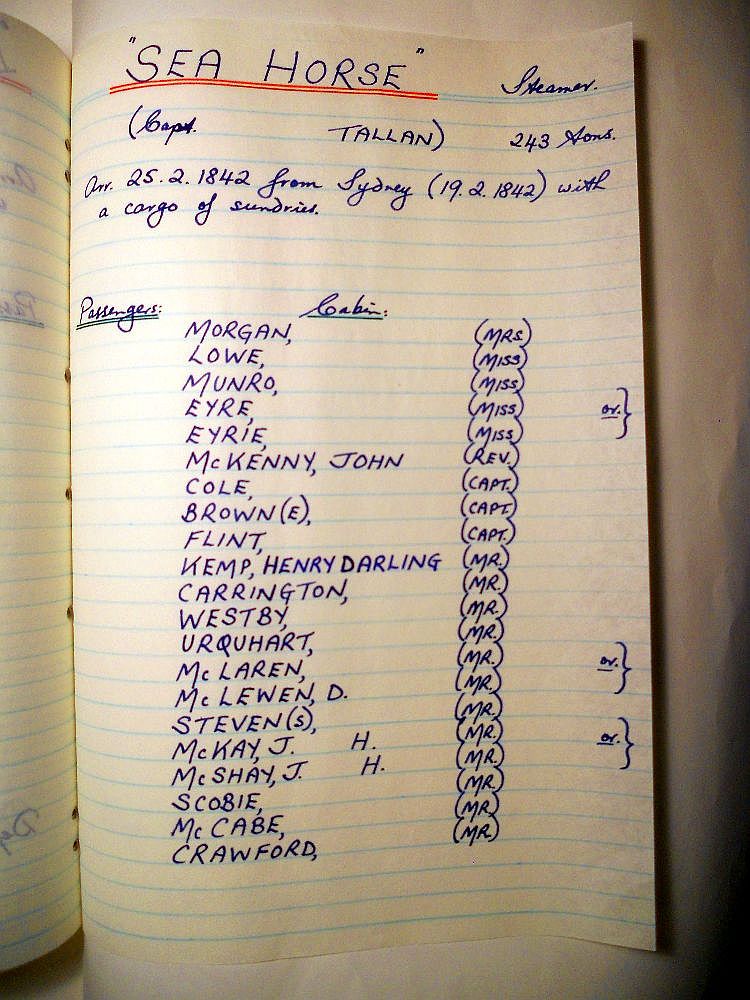 "SEA HORSE" Steamer.
(Capt. TALLAN) 243 Tons.
Arr. 25.2.1842 from Sydney (19.2.1842) with
a cargo of sundries.
Passengers: Cabin:
MORGAN, (MRS)
LOWE, (MISS)
MUNRO, (MISS)
EYRE, (MISS) or. }
EYRIE, (MISS)
McKENNY, JOHN (REV.)
COLE, (CAPT.)
BROWN(E), (CAPT)
FLINT, (CAPT.)
KEMP, HENRY DARLING (MR.)
CARRINGTON, (MR.)
WESTBY, (MR.)
URQUHART, (MR.)
McLAREN, (MR.) or. }
McLEWEN, D. (MR.)
STEVEN(S), (MR.)
McKAY, J. H. (MR.) or. }
McSHAY, J. H. (MR.)
SCOBIE, (MR.)
McCABE, (MR.)
CRAWFORD, (MR.)